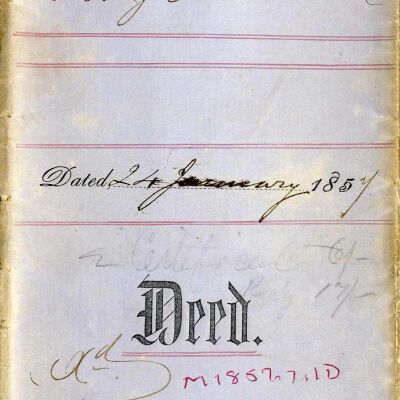 Dated 24 January 1857
Certificate 6/-
17/-
Deed.
M1857.7.1D